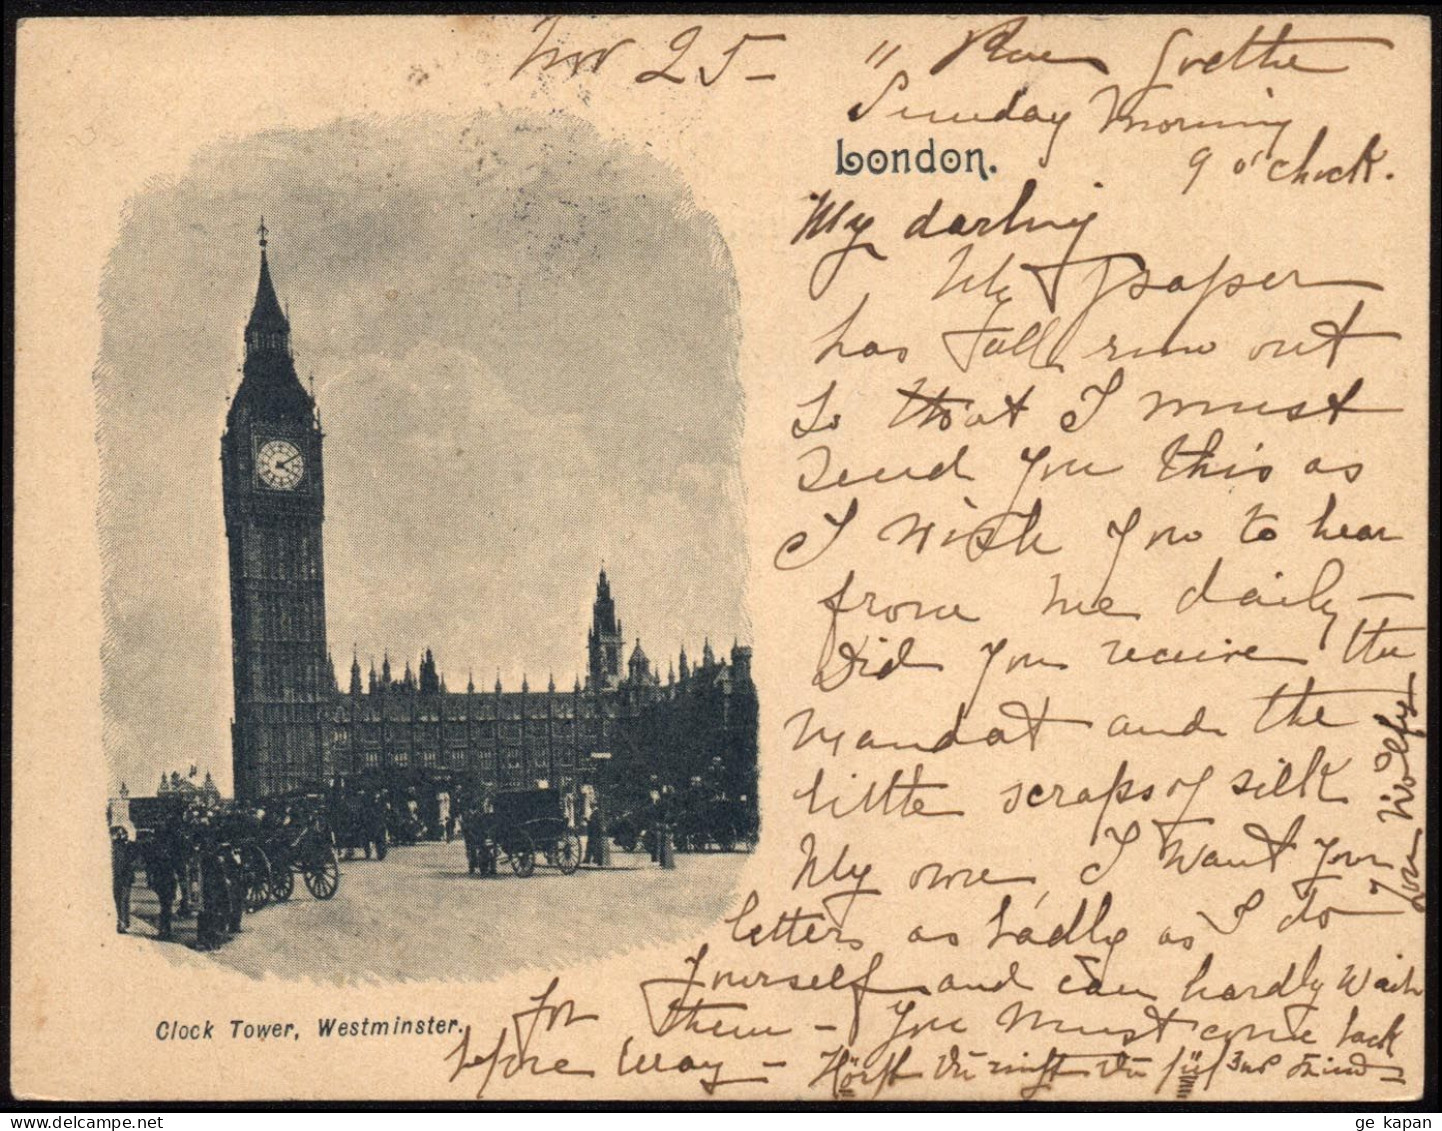 25 -
Sunday Morning
London.
9 o'clock.
My darling
My paper
has all run out
So that I must
send you this as
I wish you to hear
from me daily -
Did you receive the
Mandat and the
little scraps of silk
My own, I want your
letters as badly as I do
yourself and can hardly wait
for them - You must come back
before May -
Your Wolfy
Clock Tower, Westminster.
ge kapan